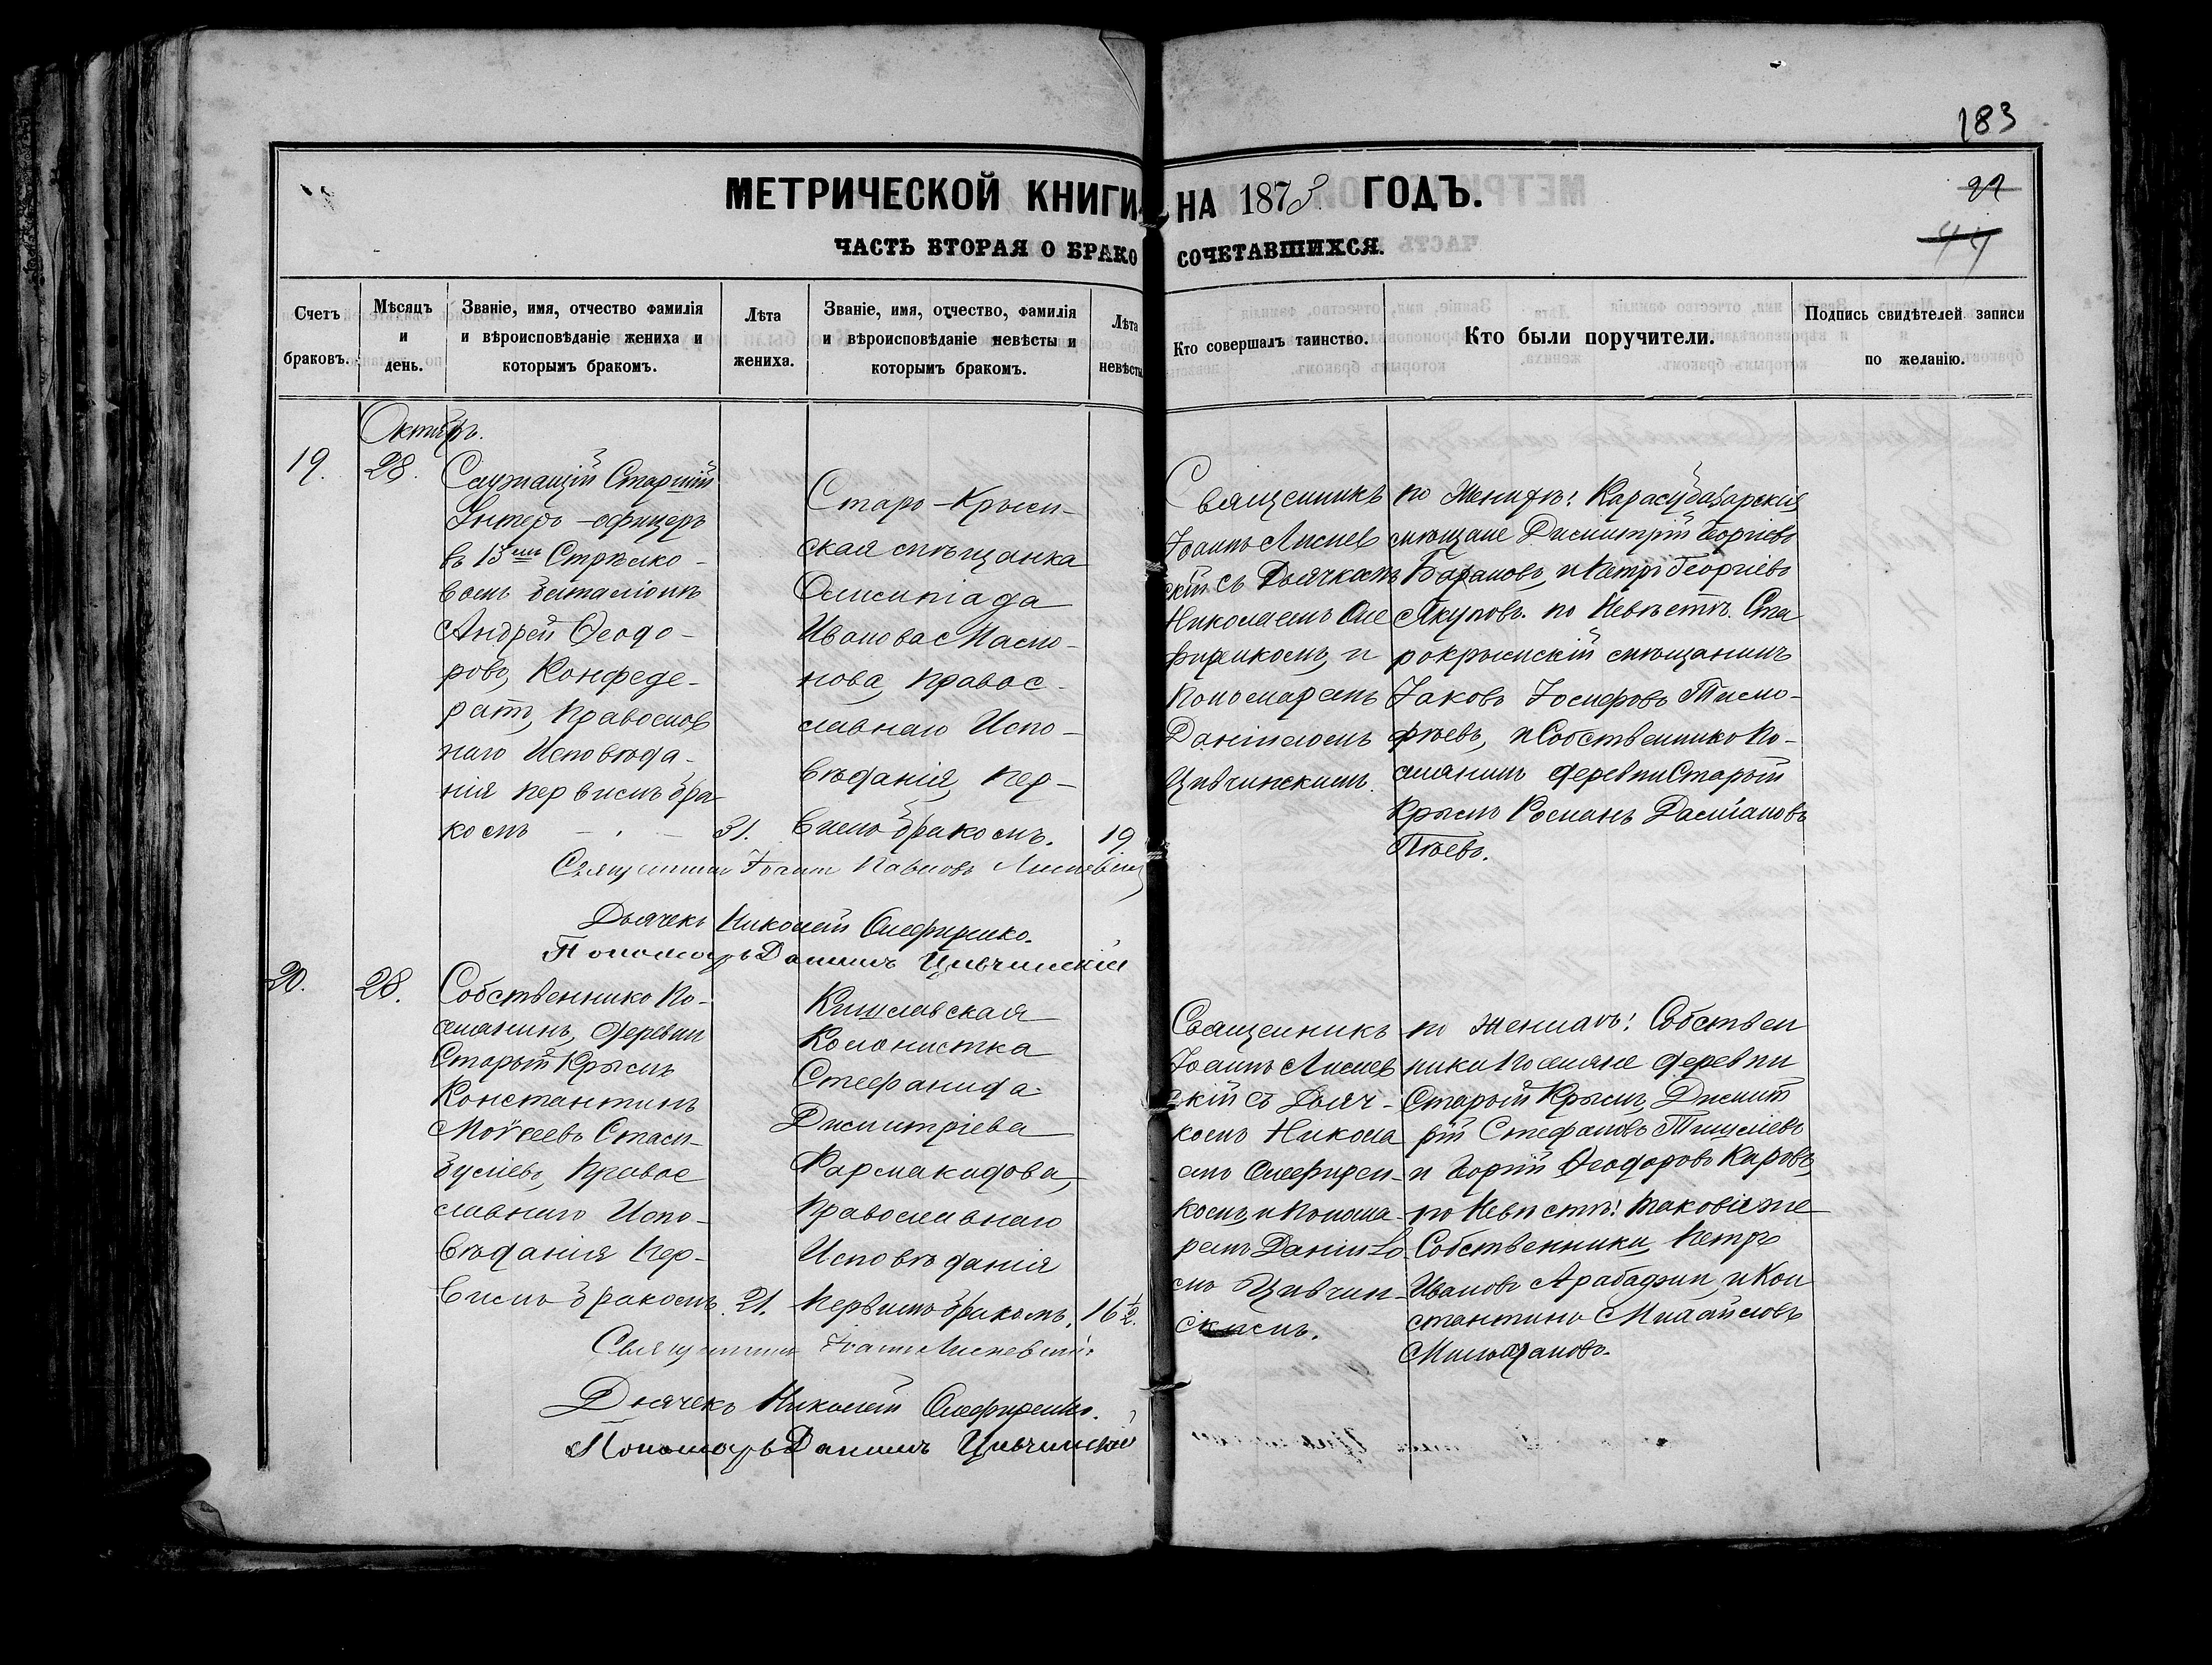 183
МЕТРИЧЕСКОЙ КНИГИ НА 1873 ГОДЪ.
22
44
ЧАСТЬ ВТОРАЯ О БРАКОСОЧЕТАВШИХСЯ.
Счетъ браковъ.
Мѣсяцъ и день.
Званіе, имя, отчество фамилія и вѣроисповѣданіе жениха и которымъ бракомъ.
Лѣта жениха.
Званіе, имя, отчество, фамилія и вѣроисповѣданіе невѣсты и которымъ бракомъ.
Лѣта невѣсты
Кто совершалъ таинство.
Кто были поручители.
Подпись свидѣтелей записи по желанію.
Октябрь.
19.
28.
Служащій Старшій
Унтеръ-офицеръ
въ 13мъ Стрѣлко-
вомъ баталіонѣ
Андрей Ѳеодо-
ровъ, Конфеде-
ратъ, Православ
наго Исповѣда-
нія первымъ бра
комъ
31.
Старо-Крым-
ская мѣщанка
Олимпіада
Иванова
нова, Правос-
лавнаго Испо-
вѣданія, пер-
вымъ бракомъ.
19
Священникъ
Іоаннъ Лиснев
скій съ Дьячкомъ
Николаемъ Оле
фиренкомъ, и
Пономаремъ
Даніиломъ
Цивчинскимъ.
по Женихѣ: Карасубазарскія
мѣщане Димитрій Георгіевъ
Барановъ, и Петръ Георгіевъ
Якуповъ. по Невѣстѣ. Ста
рокрымскій мѣщанинъ
Іаковъ Іосифовъ Тимо-
фѣевъ, и Собственнико По-
селянинъ деревни Старый
Крымъ Романъ Даміановъ
Пѣевъ.
Священникъ Іоаннъ Павловъ Лисневскій
Дьячекъ Николай Олефиренко.
Пономарь Даніилъ Цивчинскій
20.
28.
Собственнико По-
селянинъ, деревни
Старый Крымъ
Константинъ
Моѵсеевъ Стам-
буліевъ, Правос
лавнаго Испо-
вѣданія Пер-
вымъ бракомъ.
21.
Кишлавская
Колонистка
Стефанида
Димитріева
Фармакидова,
Православнаго
Исповѣданія
первымъ бракомъ.
16 1/2.
Священникъ
Іоаннъ Лиснев
скій съ Дьяч-
комъ Никола
емъ Олефирен-
комъ и Понома-
ремъ Даніило-
мъ Цивчин-
скимъ.
по Женихѣ: Собствен
ники Поселяне деревни
Старый Крымъ, Димит
рій Стефановъ
и Георгій Ѳеодоровъ Каровъ,
по Невѣстѣ: таковіе же
Собственники Петръ
Ивановъ Арабаджи, и Кон
стантинъ Михайловъ
Священникъ Іоаннъ Лисневскій
Дьячекъ Николай Олефиренко.
Пономарь Даніилъ Цивчинскій